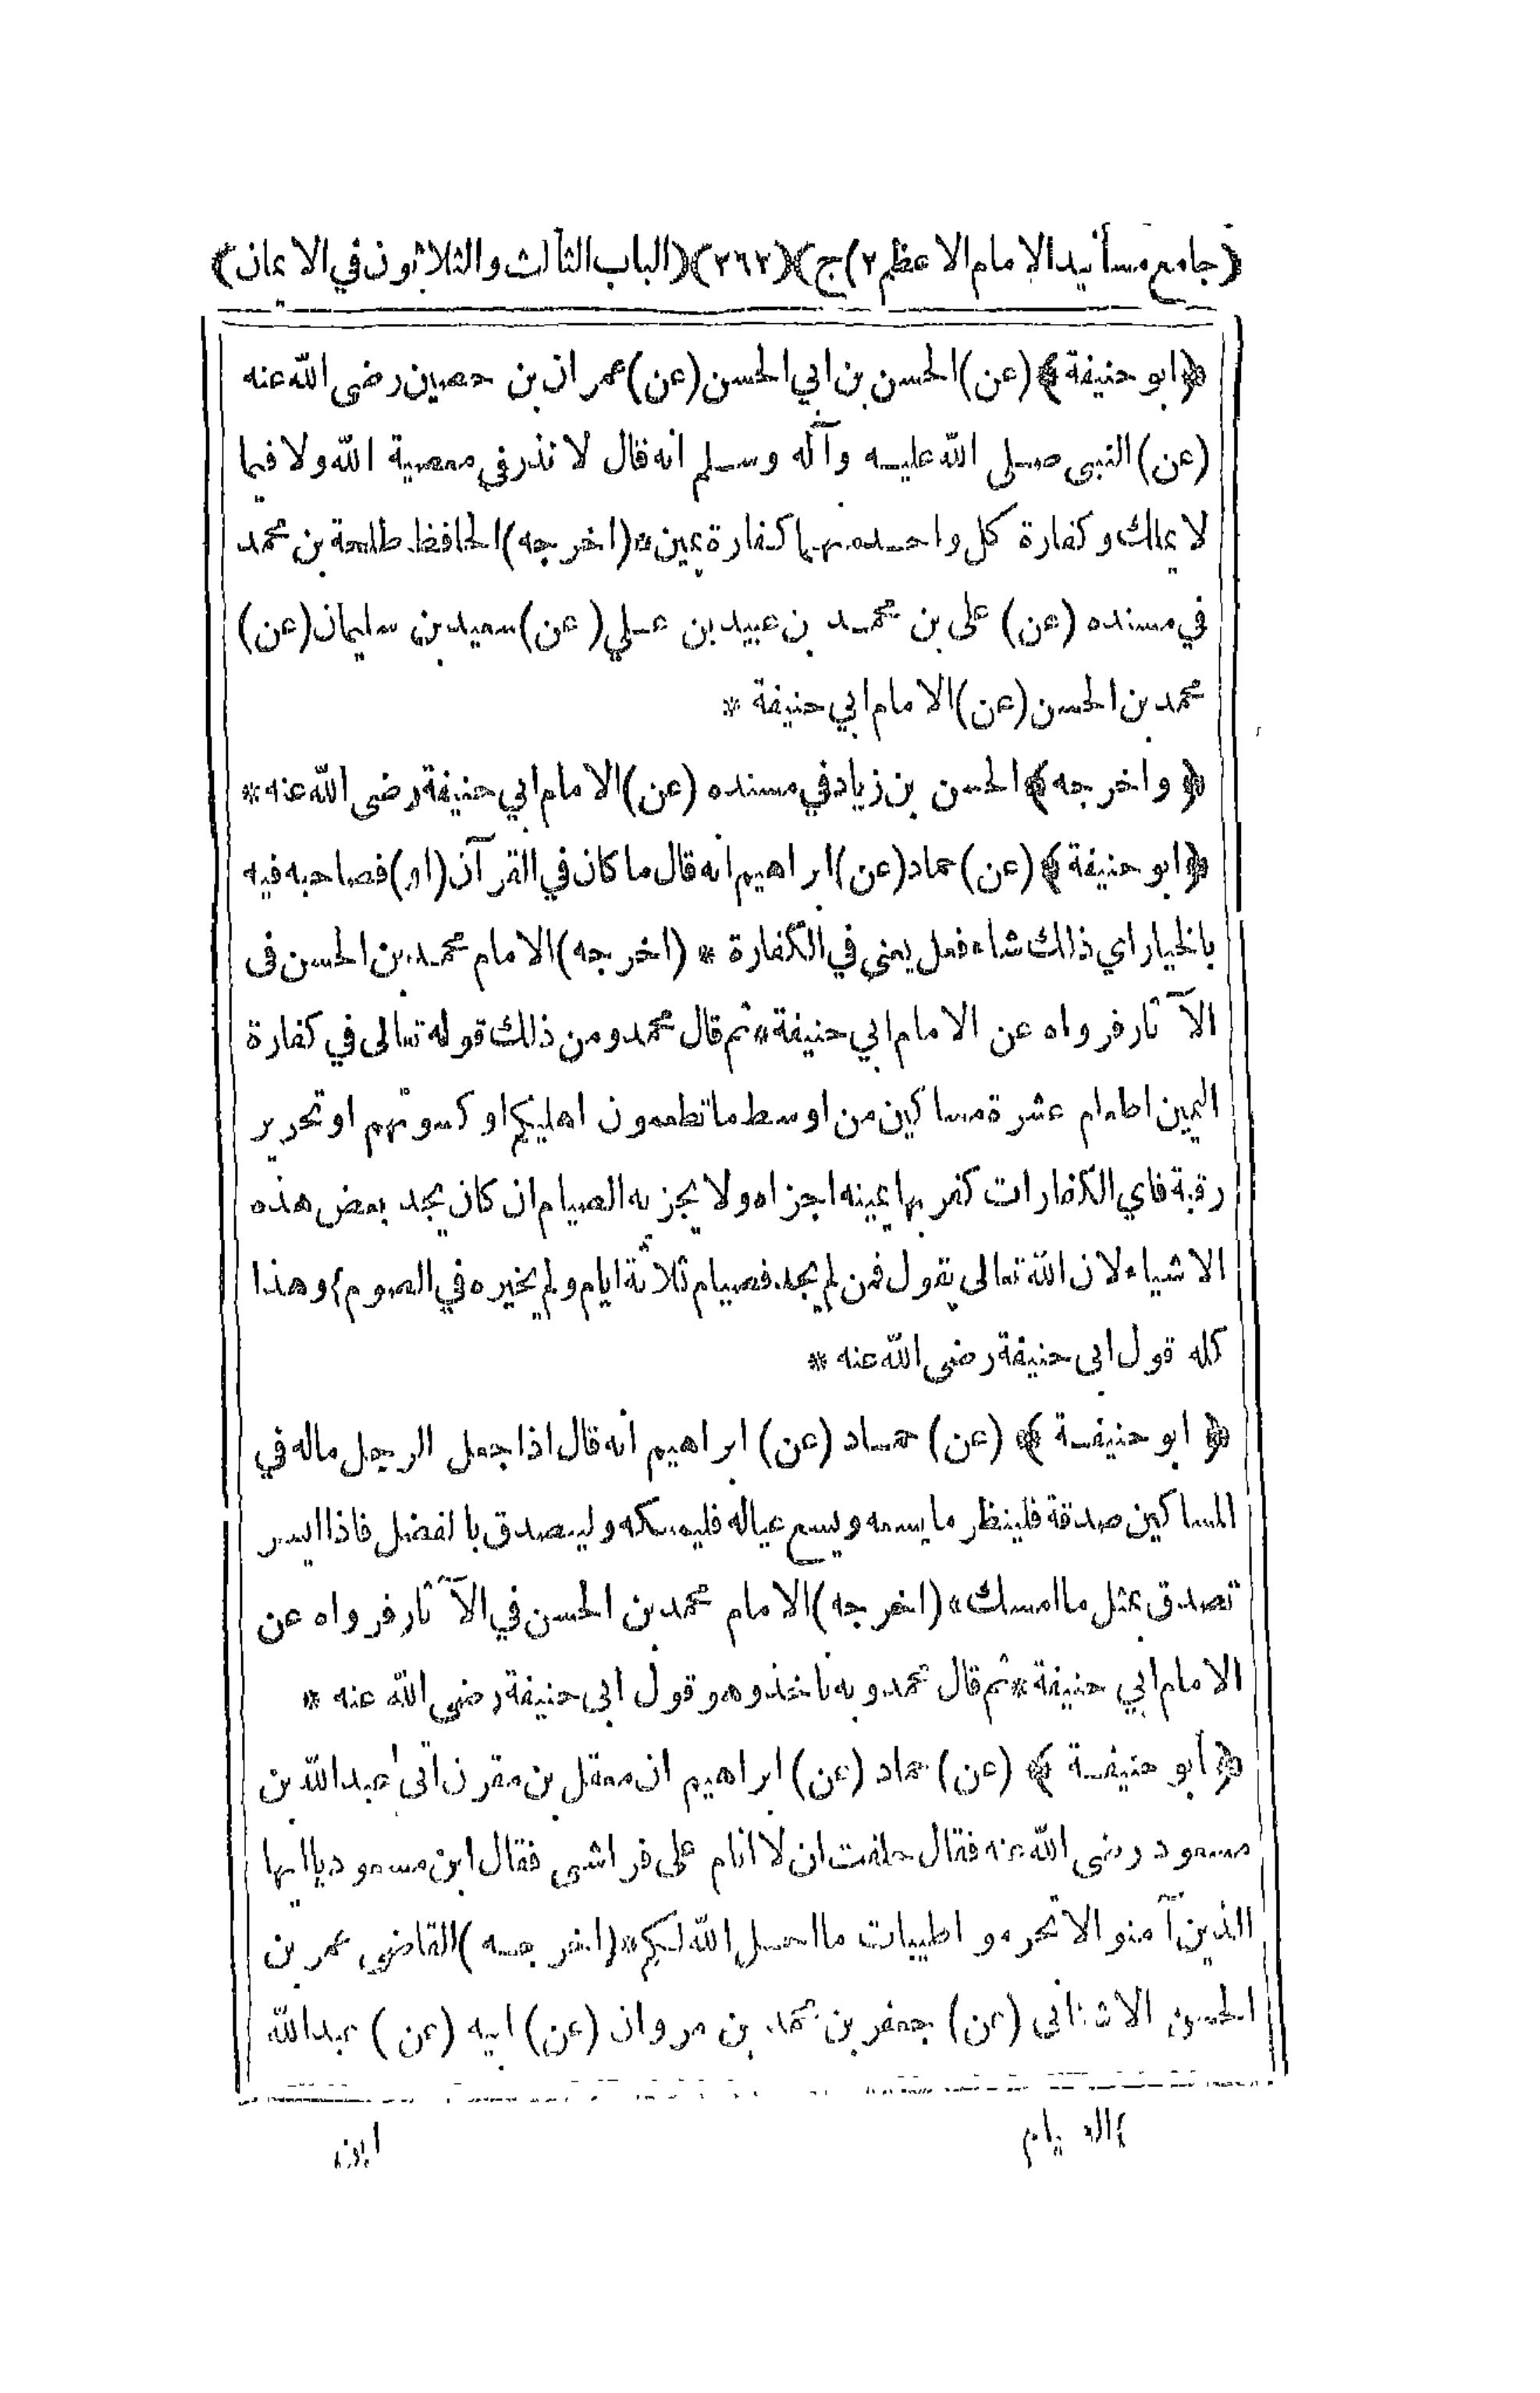 (جامع مسانيد الامام الاعظم ٢) ج) (٢٦٢) (الباب الثالث والثلاثون في الايمان)
﴿ابو حنيفة﴾ (عن) الحسن بن ابي الحسن (عن) عمران بن حصين رضى الله عنه
(عن) النبى صلى الله عليه وآله وسلم انه قال لا نذر في معصية الله ولا فيما
لا يملك وكفارة كل واحدة منهما كفارة يمين * (اخرجه) الحافظ طلحة بن محمد
في مسنده (عن) على بن محمد بن عبيد بن علي (عن) سعيد بن سليمان (عن)
محمد بن الحسن (عن) الامام ابي حنيفة *
﴿واخرجه﴾ الحسن بن زياد في مسنده (عن) الامام ابي حنيفة رضى الله عنه *
﴿ابو حنيفة﴾ (عن) حماد (عن) ابراهيم انه قال ما كان في القرآن (او) فصاحبه فيه
بالخيار اي ذلك شاء فعل يعنى في الكفارة * (اخرجه) الامام محمد بن الحسن فى
الآثار فرواه عن الامام ابي حنيفة * ثم قال محمد ومن ذلك قوله تعالى في كفارة
اليمين اطعام عشرة مساكين من اوسط ما تطعمون اهليكم او كسوتهم او تحرير
رقبة فاي الكفارات كفر بها يمينه اجزاه ولا يجزيه الصيام ان كان يجد بعض هذه
الاشياء لان الله تعالى يقول فمن لم يجد فصيام ثلاثة ايام ولم يخيره في الصوم ﴾ وهذا
كله قول ابى حنيفة رضى الله عنه *
﴿ابو حنيفة﴾ (عن) حماد (عن) ابراهيم انه قال اذا جعل الرجل ماله في
المساكين صدقة فلينظر ما يسعه ويسع عياله فليمسكه وليتصدق بالفضل فاذا ايسر
تصدق بمثل ما امسك * (اخرجه) الامام محمد بن الحسن في الآثار فرواه عن
الامام ابي حنيفة * ثم قال محمد وبه ناخذ وهو قول ابى حنيفة رضى الله عنه *
﴿ابو حنيفة﴾ (عن) حماد (عن) ابراهيم ان معقل بن مقرن اتى عبد الله بن
مسعود رضى الله عنه فقال حلفت ان لا انام على فراشى فقال ابن مسعود ياايها
الذين آمنوا لا تحرموا طيبات ما احل الله لكم * (اخرجه) القاضى عمر بن
الحسن الاشنانى (عن) جعفر بن محمد بن مروان (عن) ابيه (عن) عبد الله
ابن